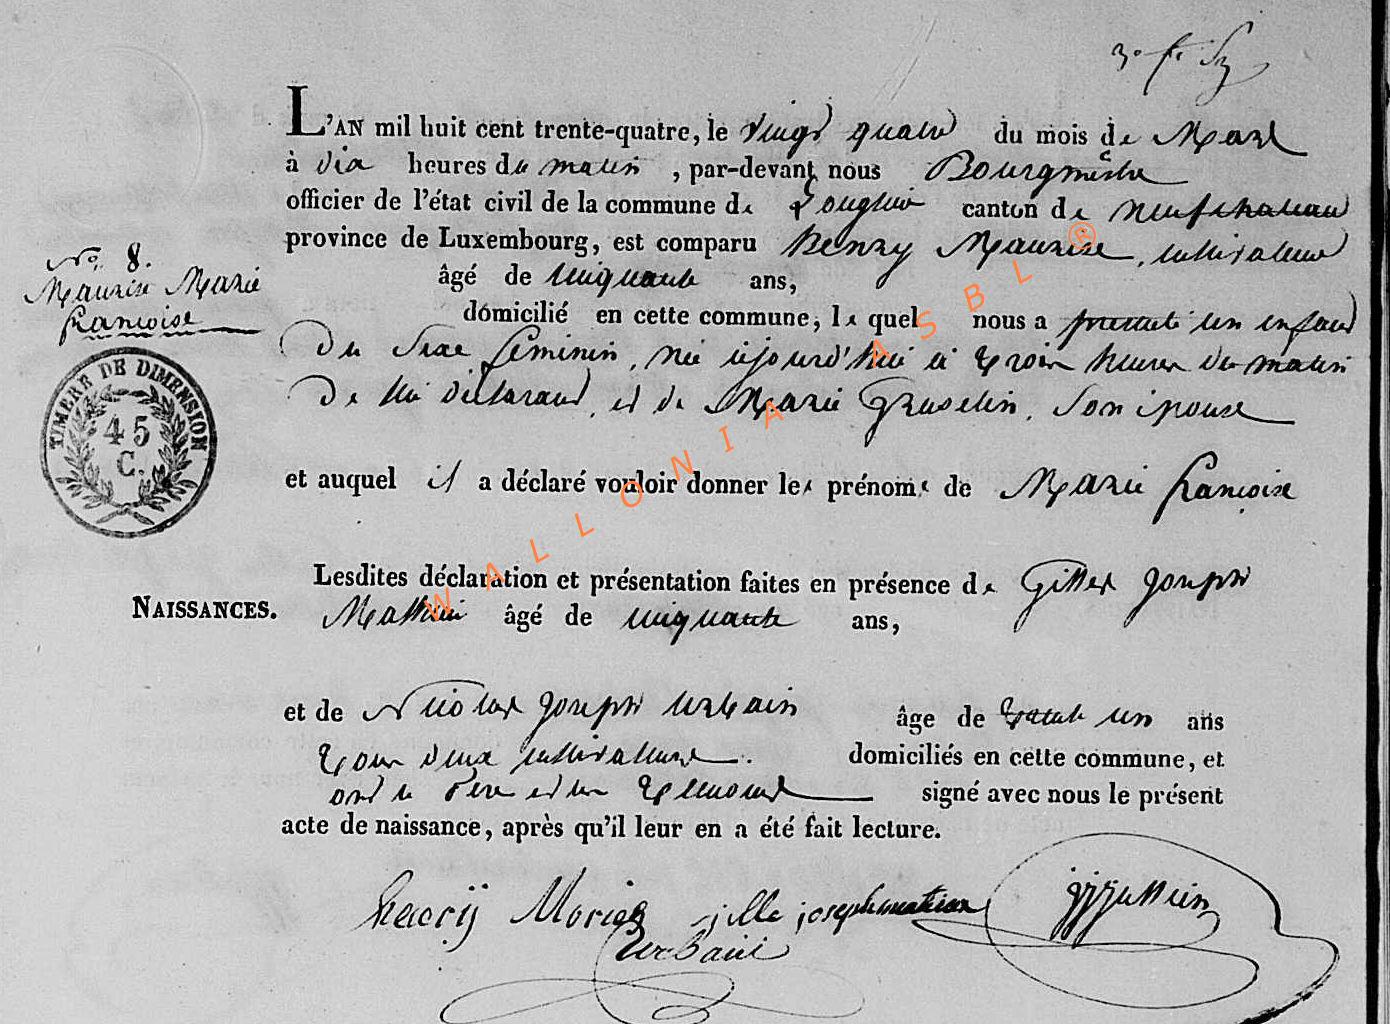 L'AN mil huit cent trente-quatre, le vingt quatre du mois de Mars
à dix heures du matin, par-devant nous Bourgmêstre
officier de l'état civil de la commune de Longlier canton de Neufchateau
province de Luxembourg, est comparu Henry Maurise, cultivateur
âgé de cinquante ans,
No. 8.
Maurise Marie
françoise
domicilié en cette commune, le quel nous a presenté un enfant
du Sexe feminin, née cejourd'hui à trois heures du matin
de lui déclarant, et de Marie Gruselin, Son épouse
TIMBRE DE DIMENSION
45
C.
et auquel il a déclaré vouloir donner les prénoms de Marie françoise
Lesdites déclaration et présentation faites en présence de Gilles Joseph
NAISSANCES.
Mathieu âgé de cinquante ans,
et de Nicolas Joseph Urbain âge de trente un ans
tous deux cultivateurs. domiciliés en cette commune, et
ont le Père et les témoins signé avec nous le présent
acte de naissance, après qu'il leur en a été fait lecture.
henrÿ Moris gille joseph matieu
Urbain
WALLONIA ASBL ®